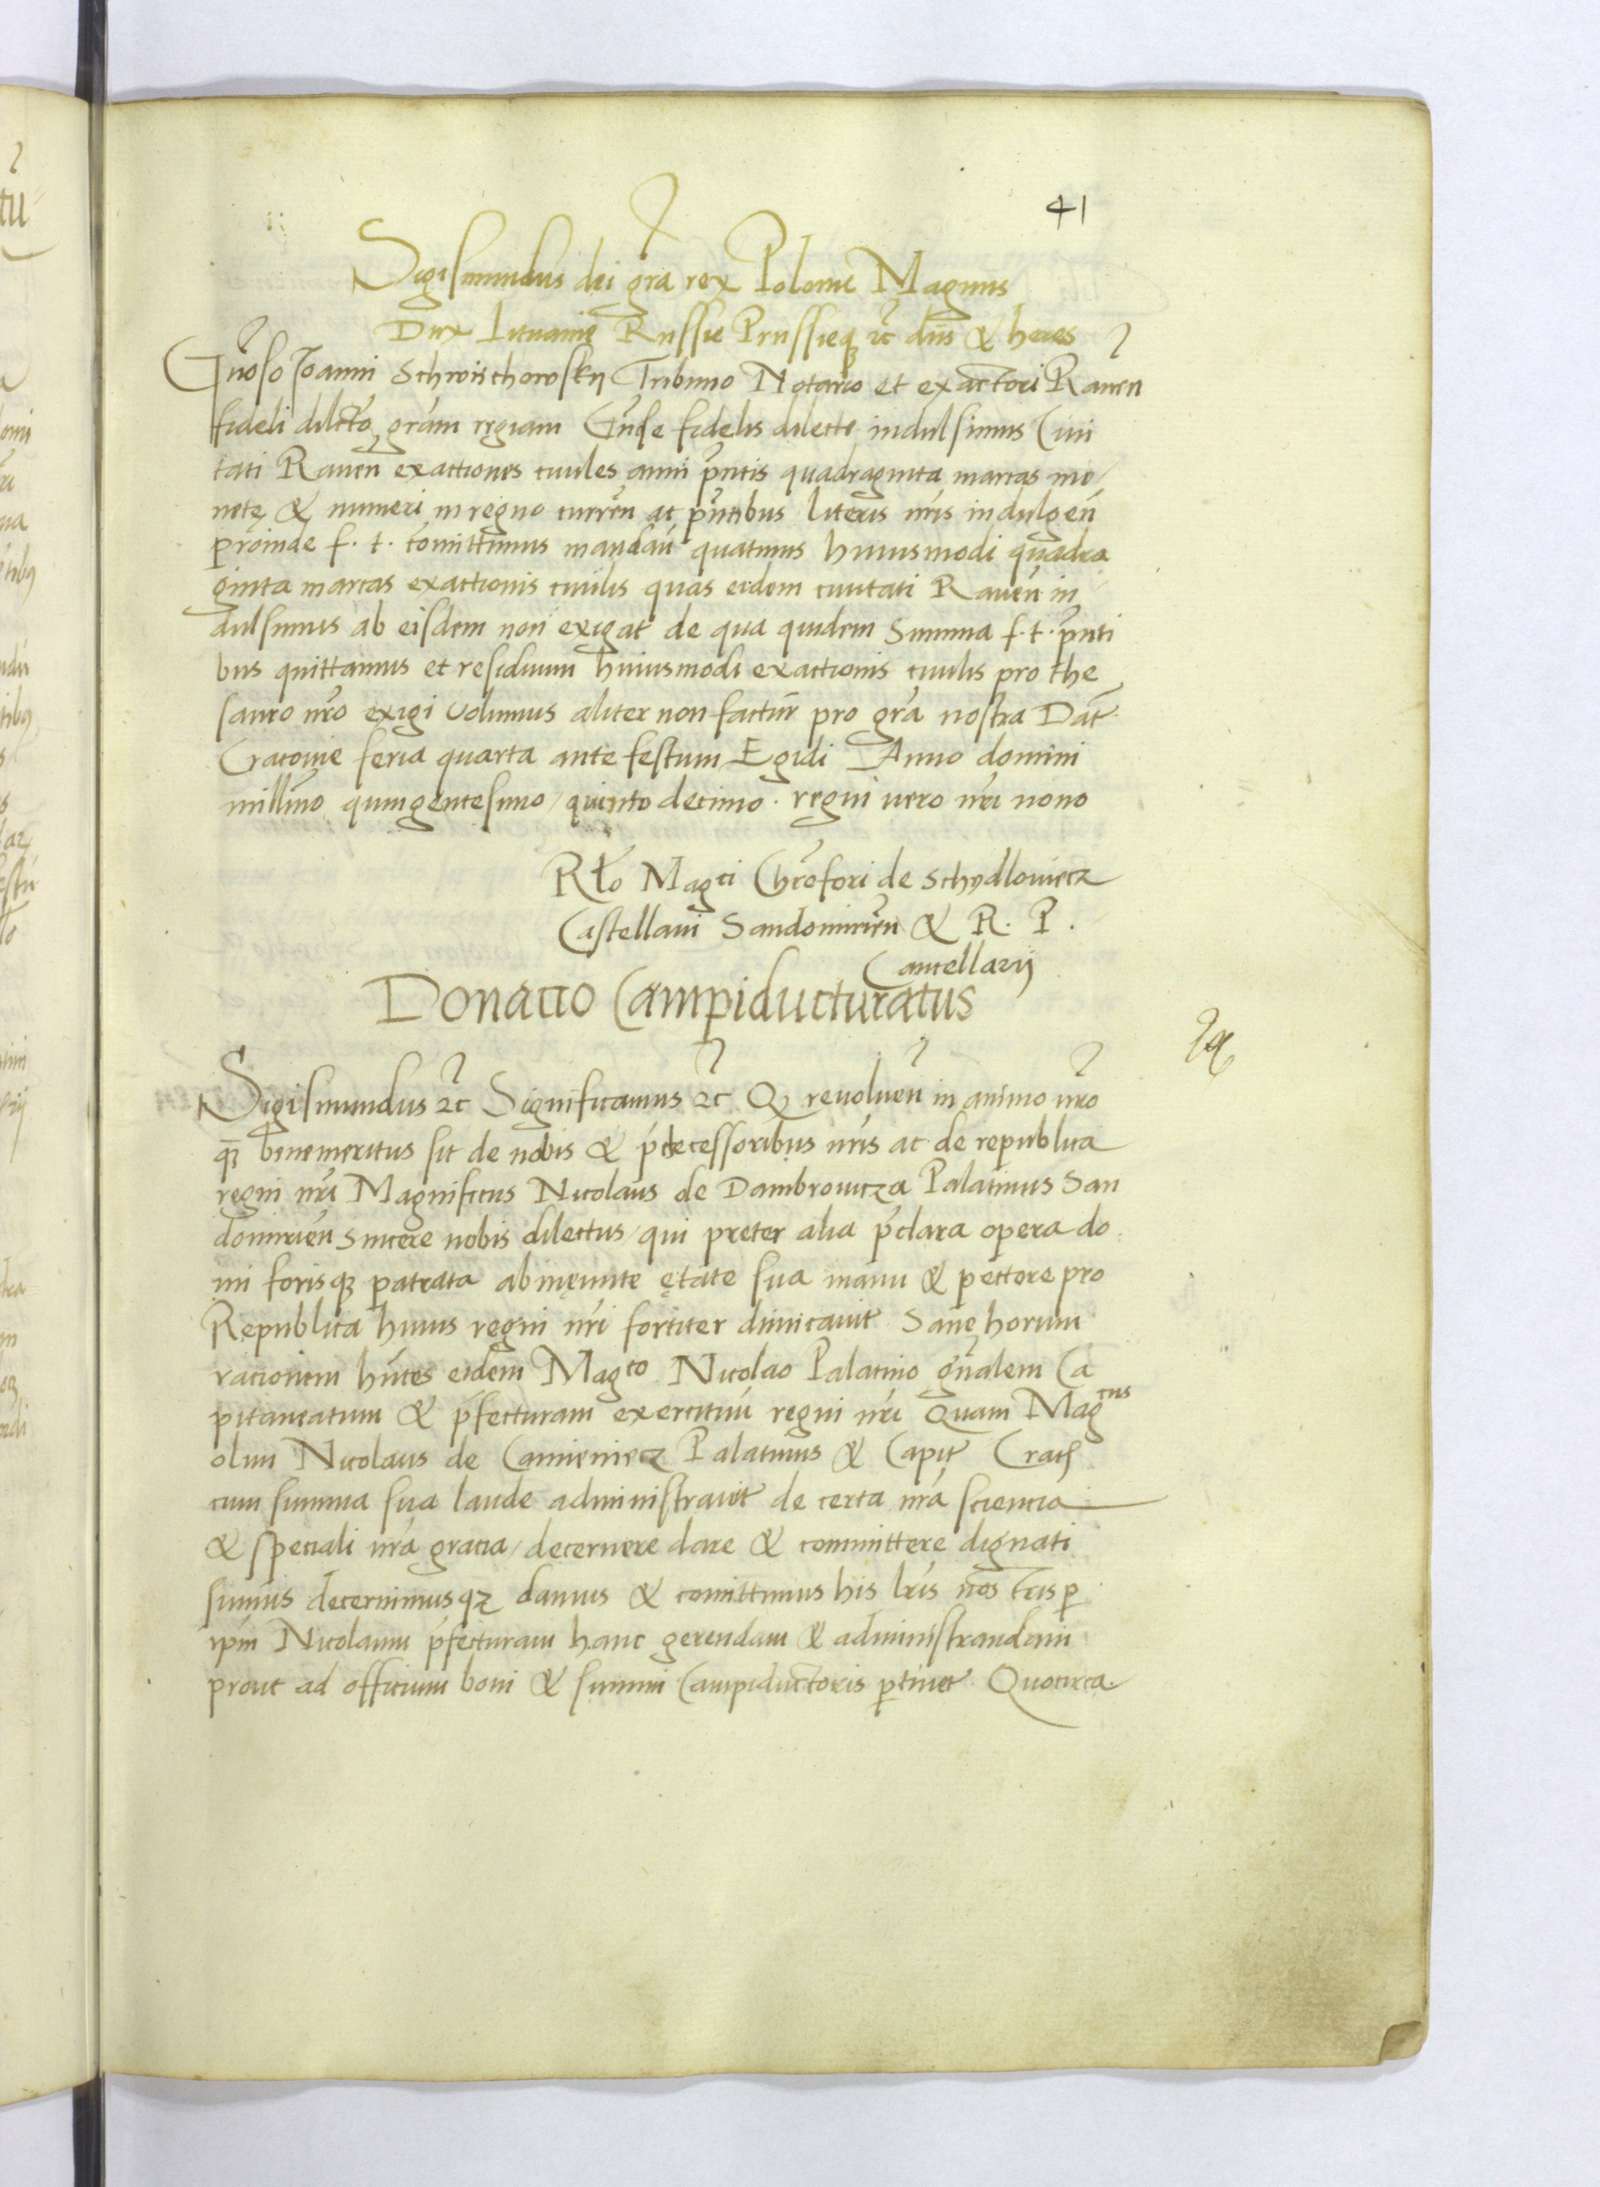 41
Sigismundus dei gra rex Polonie Magnus
Dux Lituanie Russie Prussieqꝫ ⁊c dns & heres
Gnoso Joanni Schwischowskij Tribuno Notario et exactori Raven
fideli dilcto gram regiam Gnse fidelis dilecte indulsimus Civi
tati Raven exactiones civiles anni pntis quadraginta marcas mo
netę & numeri in regno curren ac pntibus literis nris indulgen
proinde f. t. comittimus mandan quatinus huiusmodi quadra
ginta marcas exactionis civilis quas eidem civitati Raven in
dulsimus ab eisdem non exigat de qua quidem summa f. t. pnti
bus quittamus et residuum huiusmodi exactionis civilis pro the
sauro nro exigi volumus aliter non factur pro gra nostra Dat
Cracovie feria quarta ante festum Egidi Anno domini
millimo quingentesimo quinto decimo. regni vero nri nono
Rlo Magci Chrofori de Schydlowiecz
Castellani Sandomirien & R. P.
Cancellarij
Donacio Campiducturatus
Sigismundus ⁊c Significamus ⁊c Q revolven in animo nro
q benemeritus sit de nobis & pdecessoribus nris ac de republica
regni nri Magnificus Nicolaus de Dambrowicza Palatinus San
domirien sincere nobis dilectus qui preter alia pclara opera do
mi forisqꝫ patrata ab ineunte ętate sua manu & pectore pro
Republica huius regni nri fortiter dimicavit Sane horum
racionem hntes eidem Magco Nicolao Palatino gnalem Ca
pitaneatum & pfecturam exercituu regni nri Quam Magcus
olim Nicolaus de Camieniecz Palatinus & Capit Crac
cum summa sua laude administravit de certa nra sciencia
& speciali nra gracia decernere dare & committere dignati
sumus decernimusqꝫ damus & comittimus his lris nostris p
ipm Nicolaum pfecturam hanc gerendam & administrandam
prout ad officium boni & summi Campiductoris ptinet Quocirca